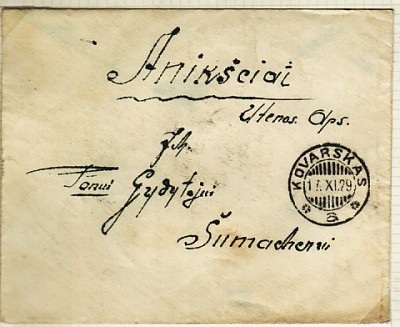 Anikščiai
Utenos. Aps.
Jh.
Ponui Gydytojui
Šumacherui
KOVARSKAS
17.XI.29
a